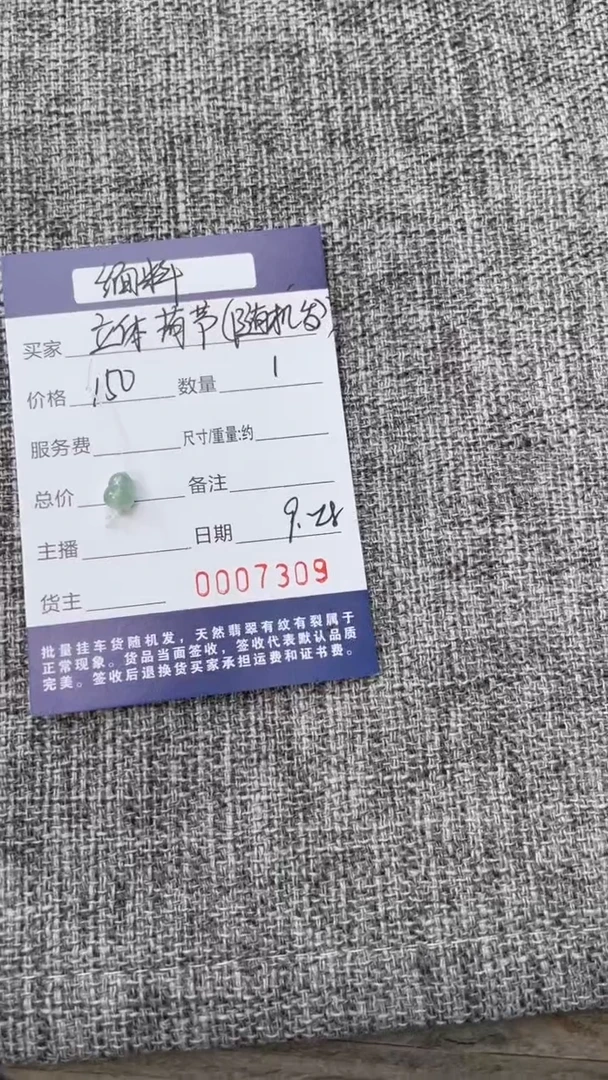 缅料
买家 立体荷节(随机台)
价格 150 数量 1
服务费 尺寸/重量:约
总价 备注
主播 日期 9.28
货主 0007309
批量挂车货随机发，天然翡翠有纹有裂属于
正常现象。货品当面签收，签收代表默认品质
完美。签收后退换货买家承担运费和证书费。